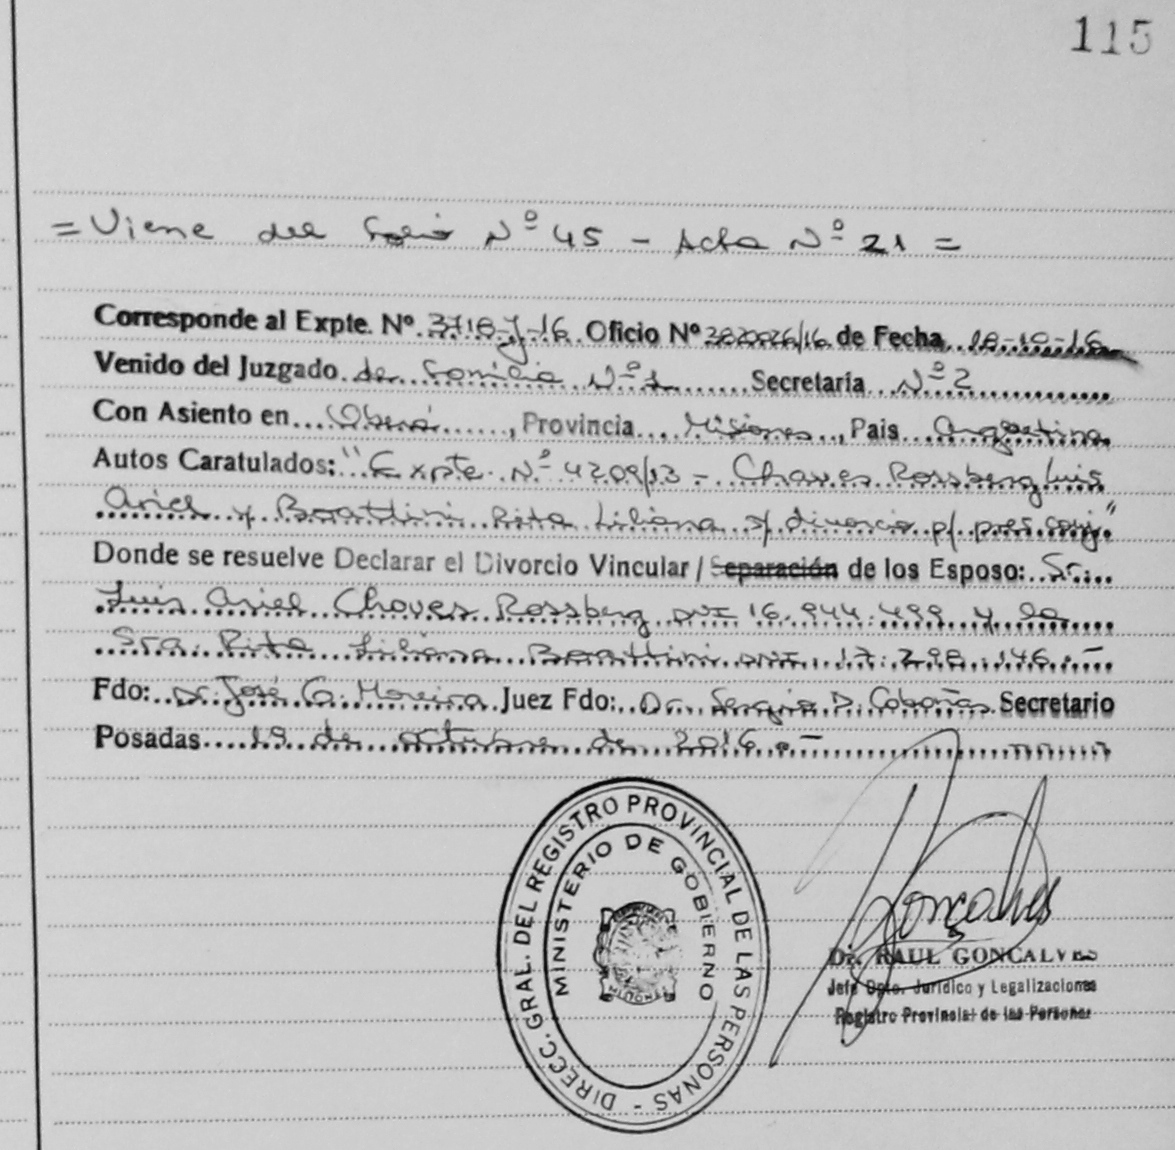 115
= Viene del Folio Nº 45 - Acta Nº 21 =
Corresponde al Expte. Nº 3718-J-16 Oficio Nº 382026/16 de Fecha 18-10-16
Venido del Juzgado de Familia Nº 1 Secretaría Nº 2
Con Asiento en Oberá, Provincia Misiones, Pais Argentina
Autos Caratulados: "Expte. Nº 4209/13 - Chaves Rossberg Luis
Ariel y Boattini Rita Liliana s/ divorcio p/ pres. conj."
Donde se resuelve Declarar el Divorcio Vincular / Separación de los Esposo: Sr.
Luis Ariel Chaves Rossberg DNI 16.944.499 y la
Sra. Rita Liliana Boattini DNI 17.298.146.-
Fdo: Dr. José G. Moreira Juez Fdo: Dr. Sergio D. Cabañas Secretario
Posadas 19 de octubre de 2016.-
DIRECC. GRAL. DEL REGISTRO PROVINCIAL DE LAS PERSONAS -
MINISTERIO DE GOBIERNO
Gonçalves
Dr. RAUL GONCALVES
Jefe Dpto. Jurídico y Legalizaciones
Registro Provincial de las Personas